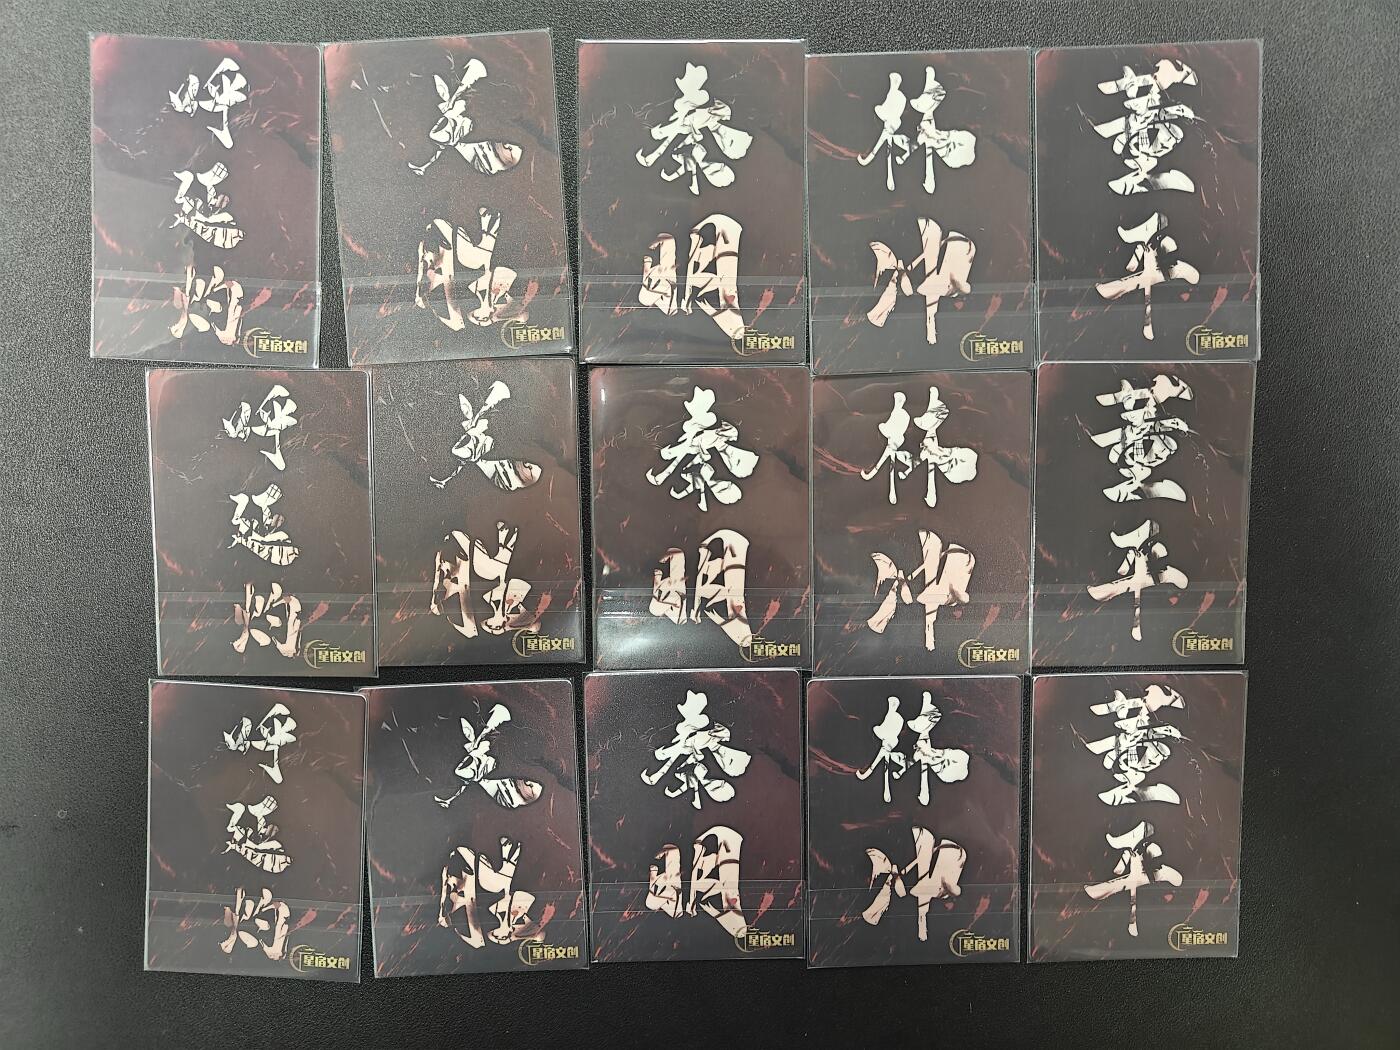 呼延灼
关胜
秦明
林冲
董平
星宿文创
星宿文创
星宿文创
星宿文创
星宿文创
呼延灼
关胜
秦明
林冲
董平
星宿文创
星宿文创
星宿文创
星宿文创
星宿文创
呼延灼
关胜
秦明
林冲
董平
星宿文创
星宿文创
星宿文创
星宿文创
星宿文创